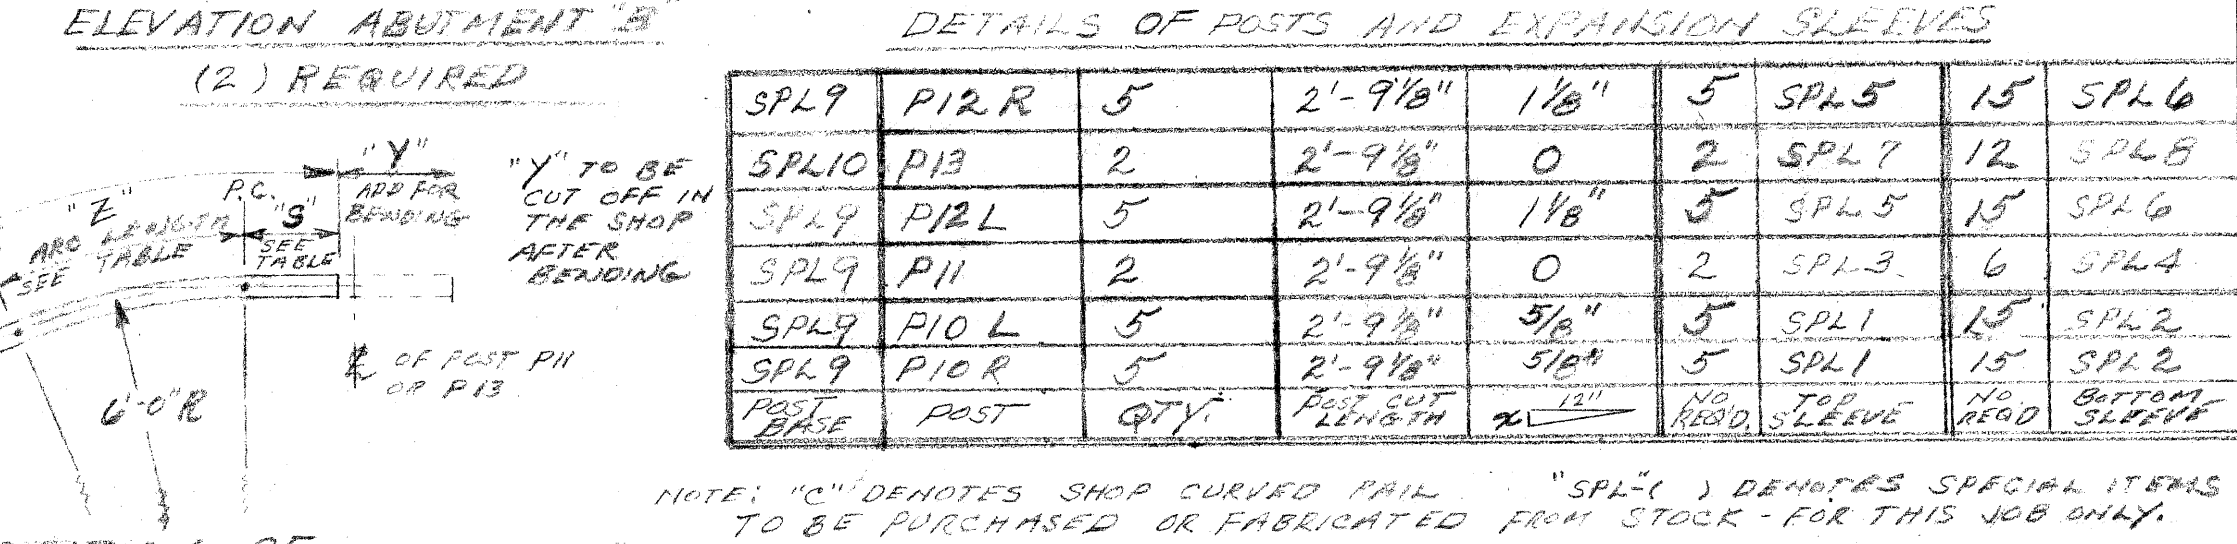 ELEVATION ABUTMENT "B"
(2) REQUIRED
DETAILS OF POSTS AND EXPANSION SLEEVES
"Y"
ADD FOR
BENDING
"Y" TO BE
CUT OFF IN
THE SHOP
AFTER
BENDING
P.C.
"S"
SEE
TABLE
"Z"
ARC LENGTH
SEE TABLE
6'-0"R
℄ OF POST P11
OR P13
SPL9 P12R 5 2'-9 1/8" 1 1/8" 5 SPL5 15 SPL6
SPL10 P13 2 2'-9 1/8" 0 2 SPL7 12 SPL8
SPL9 P12L 5 2'-9 1/8" 1 1/8" 5 SPL5 15 SPL6
SPL9 P11 2 2'-9 1/8" 0 2 SPL3 6 SPL4
SPL9 P10L 5 2'-9 1/8" 5/8" 5 SPL1 15 SPL2
SPL9 P10R 5 2'-9 1/8" 5/8" 5 SPL1 15 SPL2
POST BASE POST QTY. POST CUT LENGTH x 12" NO. REQ'D. TOP SLEEVE NO. REQ'D BOTTOM SLEEVE
NOTE: "C" DENOTES SHOP CURVED RAIL "SPL-( ) DENOTES SPECIAL ITEMS
TO BE PURCHASED OR FABRICATED FROM STOCK - FOR THIS JOB ONLY.